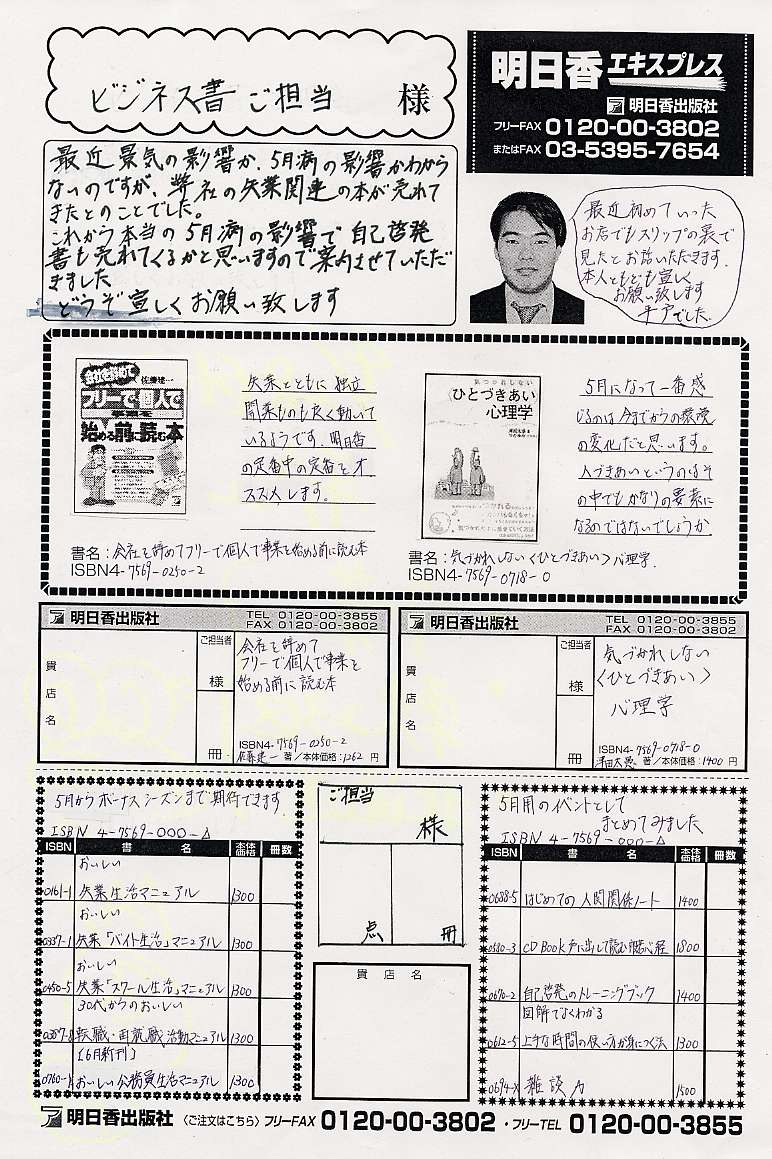 ビジネス書ご担当 様
明日香エキスプレス
明日香出版社
フリーFAX 0120-00-3802
またはFAX 03-5395-7654
最近景気の影響か、5月病の影響かわから
ないのですが、弊社の失業関連の本が売れて
きたとのことでした。
これから本当の5月病の影響で自己啓発
書も売れてくるかと思いますので案内させていただ
きました
どうぞ宜しくお願い致します
最近初めていった
お店でもスリップの裏で
見たとお話いただきます。
本人ともども宜しく
お願い致します
平戸でした。
会社を辞めて
佐藤建一
フリーで、個人で
事業を
始める前に読む本
失業とともに独立
開業ものも良く動いて
いるようです。明日香
の定番中の定番とオ
ススメします。
書名：会社を辞めてフリーで個人で事業を始める前に読む本
ISBN4-7569-0250-2
気づかれしない
〈ひとづきあい〉
心理学
5月になって一番感
じるのは今までからの環境
の変化だと思います。
人づきあいというのはそ
の中でもかなりの要素に
なるのではないでしょうか
書名：気づかれしない〈ひとづきあい〉心理学.
ISBN4-7569-0718-0
明日香出版社
TEL 0120-00-3855
FAX 0120-00-3802
貴店名
ご担当者
様
冊
会社を辞めて
フリーで個人で事業を
始める前に読む本
ISBN4-7569-0250-2
佐藤建一 著／本体価格：1262 円
明日香出版社
TEL 0120-00-3855
FAX 0120-00-3802
貴店名
ご担当者
様
冊
気づかれしない
〈ひとづきあい〉
心理学
ISBN4-7569-0718-0
著／本体価格：1400 円
5月からボーナスシーズンまで期待できます.
ISBN 4-7569-000-△
ISBN 書名 本体価格 冊数
0161-1 おいしい失業生活マニュアル 1300
0337-1 おいしい失業「バイト生活」マニュアル 1300
0450-5 おいしい失業「スクール生活」マニュアル 1300
0387-8 30代からのおいしい転職・再就職活動マニュアル 1300
〔6月新刊〕
0760-1 おいしい公務員生活マニュアル 1300
ご担当
様
点
冊
貴店名
5月用のイベントとして
まとめてみました
ISBN 4-7569-000-△
ISBN 書名 本体価格 冊数
0688-5 はじめての人間関係ノート 1400
0530-3 CD Book 声に出して読む般若心経 1800
0670-2 自己啓発のトレーニングブック 1400
0612-5 図解でよくわかる上手な時間の使い方が身につく法 1300
0694-X 雑談力 1500
明日香出版社 〈ご注文はこちら〉フリーFAX 0120-00-3802 ・フリーTEL 0120-00-3855